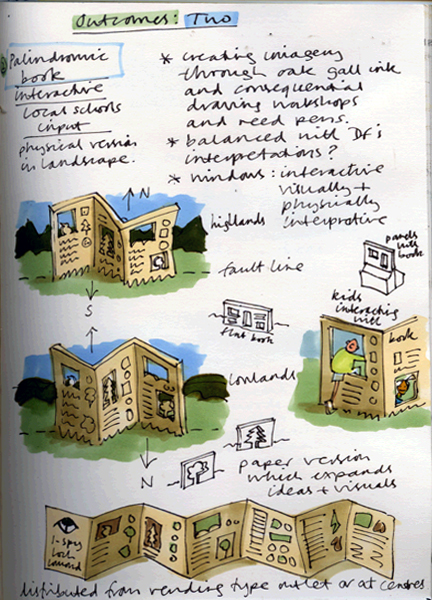 Outcomes: Two
Palindromic
book
interactive
local schools
input
physical version
in landscape.
* creating imagery
through oak gall ink
and consequential
drawing workshops
and reed pens.
* balanced with DF's
interpretations?
* windows: interactive
visually +
physically
interpretive
N
highlands
panels
with
book
fault line
S
kids
interacting
with
book
flat book
lowlands
N
paper version
which expands
ideas + visuals
I-spy
Loch
Lomond
distributed from vending type outlet or at centres